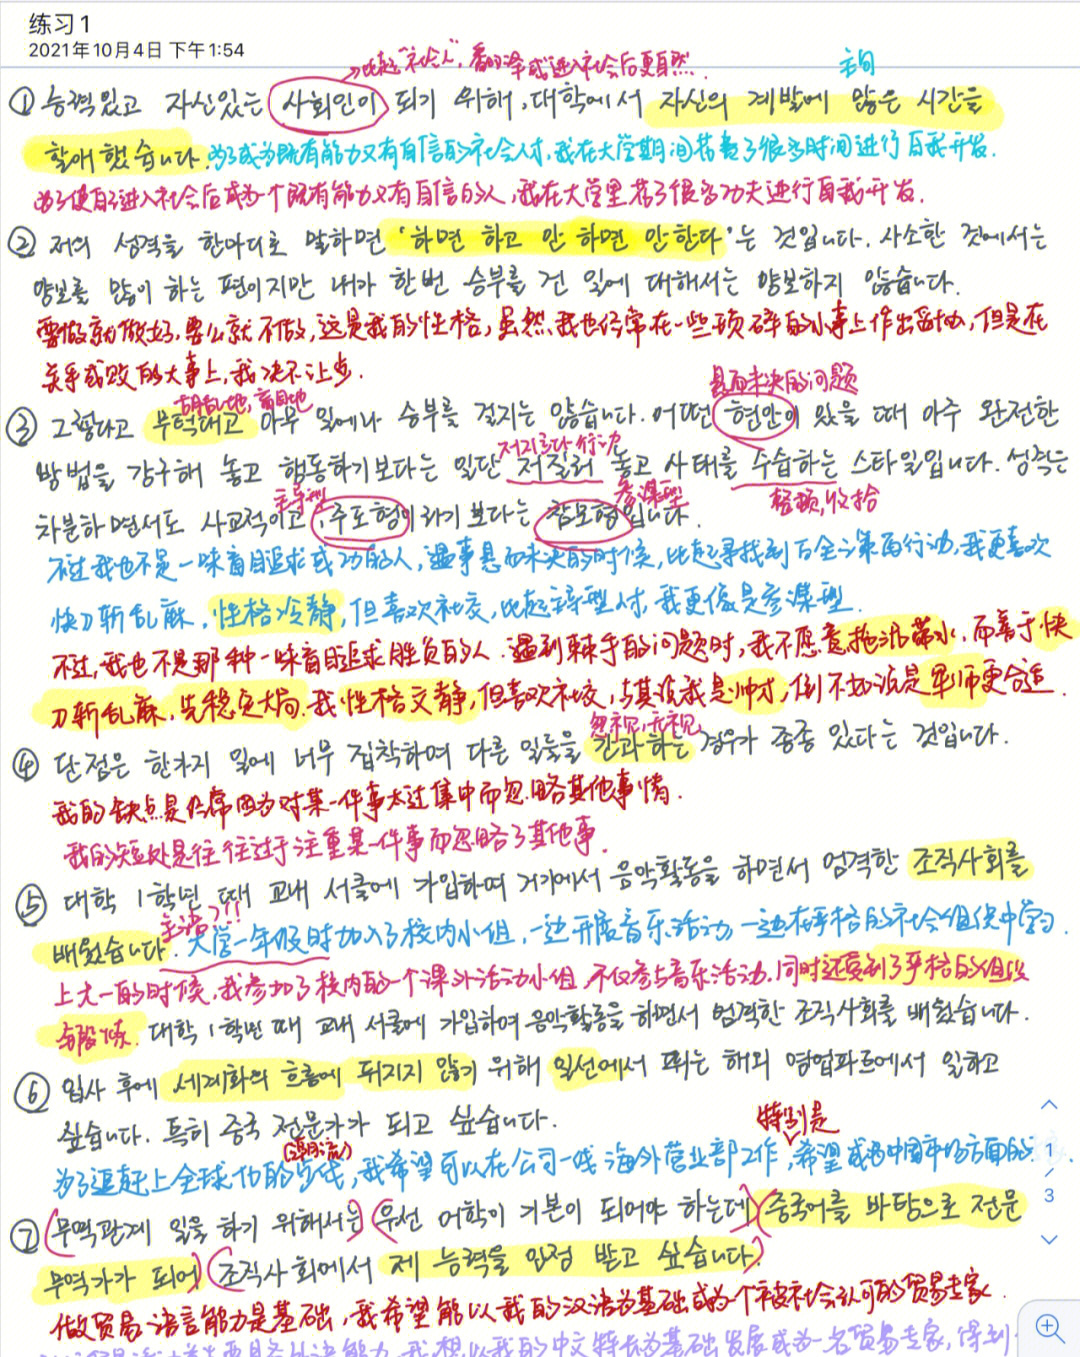 练习1
2021年10月4日 下午1:54
→比起"社会人",翻译成进入社会后更自然.
主句
① 능력있고 자신있는 사회인이 되기 위해, 대학에서 자신의 계발에 많은 시간을
할애했습니다. 为了成为既有能力又有自信的社会人才,我在大学期间花费了很多时间进行自我开发.
为了使自己进入社会后成为一个既有能力又有自信的人,我在大学里花了很多功夫进行自我开发.
② 저의 성격을 한마디로 말하면 '하면 하고 안 하면 안한다'는 것입니다. 사소한 것에서는
양보를 많이 하는 편이지만 내가 한번 승부를 건 일에 대해서는 양보하지 않습니다.
要做就做好,要么就不做,这是我的性格,虽然我也经常在一些琐碎的小事上作出妥协,但是在
关乎成败的大事上,我决不让步.
悬而未决的问题
胡乱地,盲目地
③ 그렇다고 무턱대고 아무 일에나 승부를 걸지는 않습니다. 어떤 현안이 있을 때 아주 완전한
저지르다 行动
방법을 강구해 놓고 행동하기보다는 일단 저질러 놓고 사태를 수습하는 스타일입니다. 성격은
主导型 参谋型 整顿,收拾
차분하면서도 사교적이고, 주도형이라기 보다는 참모형입니다.
不过我也不是一味盲目追求成功的人,遇事悬而未决的时候,比起寻找到万全之策再行动,我更喜欢
快刀斩乱麻,性格冷静,但喜欢社交,比起主导型人才,我更像是参谋型.
不过,我也不是那种一味盲目追求胜负的人.遇到棘手的问题时,我不愿意拖泥带水,而善于快
刀斩乱麻,先稳定大局.我性格文静,但喜欢社交,与其说我是帅才,倒不如说是军师更合适.
忽视,无视
④ 단점은 한가지 일에 너무 집착하여 다른 일들을 간과하는 경우가 종종 있다는 것입니다.
我的缺点是经常因为对某一件事太过集中而忽略其他事情.
我的短处是往往过于注重某一件事而忽略了其他事.
⑤ 대학 1학년 때 교내 서클에 가입하여 거기에서 음악활동을 하면서 엄격한 조직사회를
主语?!!
배웠습니다. 大学一年级时加入了校内小组,一边开展音乐活动一边在严格的社会组织中学习.
上大一的时候,我参加了校内的一个课外活动小组,不仅参与音乐活动,同时还受到了严格的组织
与锻炼. 대학 1학년 때 교내 서클에 가입하여 음악활동을 하면서 엄격한 조직사회를 배웠습니다.
⑥ 입사 후에 세계화의 흐름에 뒤지지 않기 위해 일선에서 뛰는 해외 영업파트에서 일하고
싶습니다. 특히 중국 전문가가 되고 싶습니다.
特别是
为了追赶上全球化的步伐,我希望可以在公司一线海外营业部工作,希望成为中国市场方面的
1
3
⑦ (무역관계 일을 하기 위해서는)(우선 어학이 기본이 되어야 하는데)(중국어를 바탕으로 전문
무역가가 되어)(조직사회에서 제 능력을 인정 받고 싶습니다.)
做贸易语言能力是基础,我希望能以我的汉语为基础成为一个被社会认可的贸易专家.
我想以我的中文特长为基础发展成为一名贸易专家,得到